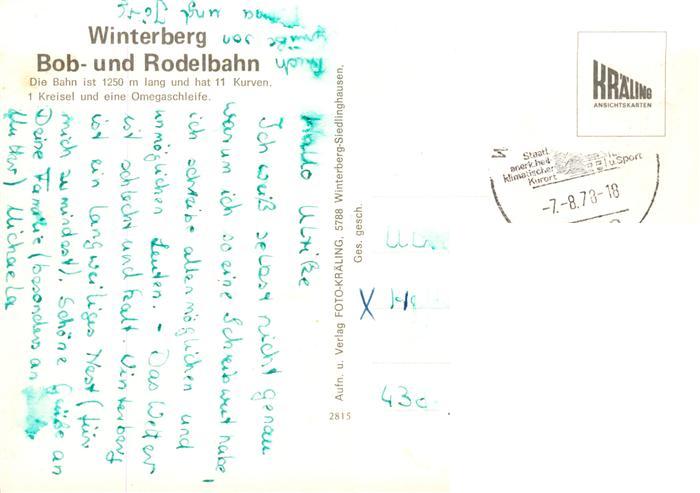 Winterberg
Bob- und Rodelbahn
Die Bahn ist 1250 m lang und hat 11 Kurven.
1 Kreisel und eine Omegaschleife.
Hallo Ulrike
Ich weiß selbst nicht genau
warum ich so eine Schreibwut habe,
ich schreibe allen möglichen und
unmöglichen Leuten. - Das Wetter
ist schlecht und kalt. Winterberg
ist ein langweiliges Nest (für
mich zumindest). Schöne Grüße an
Deine Familie (besonders an
Mutter) Michaela
Aufn. u. Verlag FOTO-KRÄLING, 5788 Winterberg-Siedlinghausen,
Ges. gesch.
2815
KRÄLING
ANSICHTSKARTEN
Staatl.
anerk. heil
klimatischer
Kurort
u. Sport
-7.-8.78-18
X